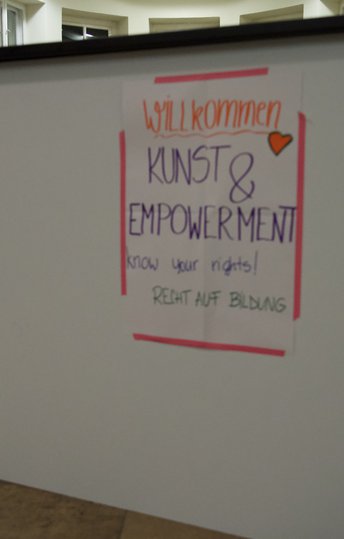 WILLKOMMEN
KUNST &
EMPOWERMENT
know your rights!
RECHT AUF BILDUNG